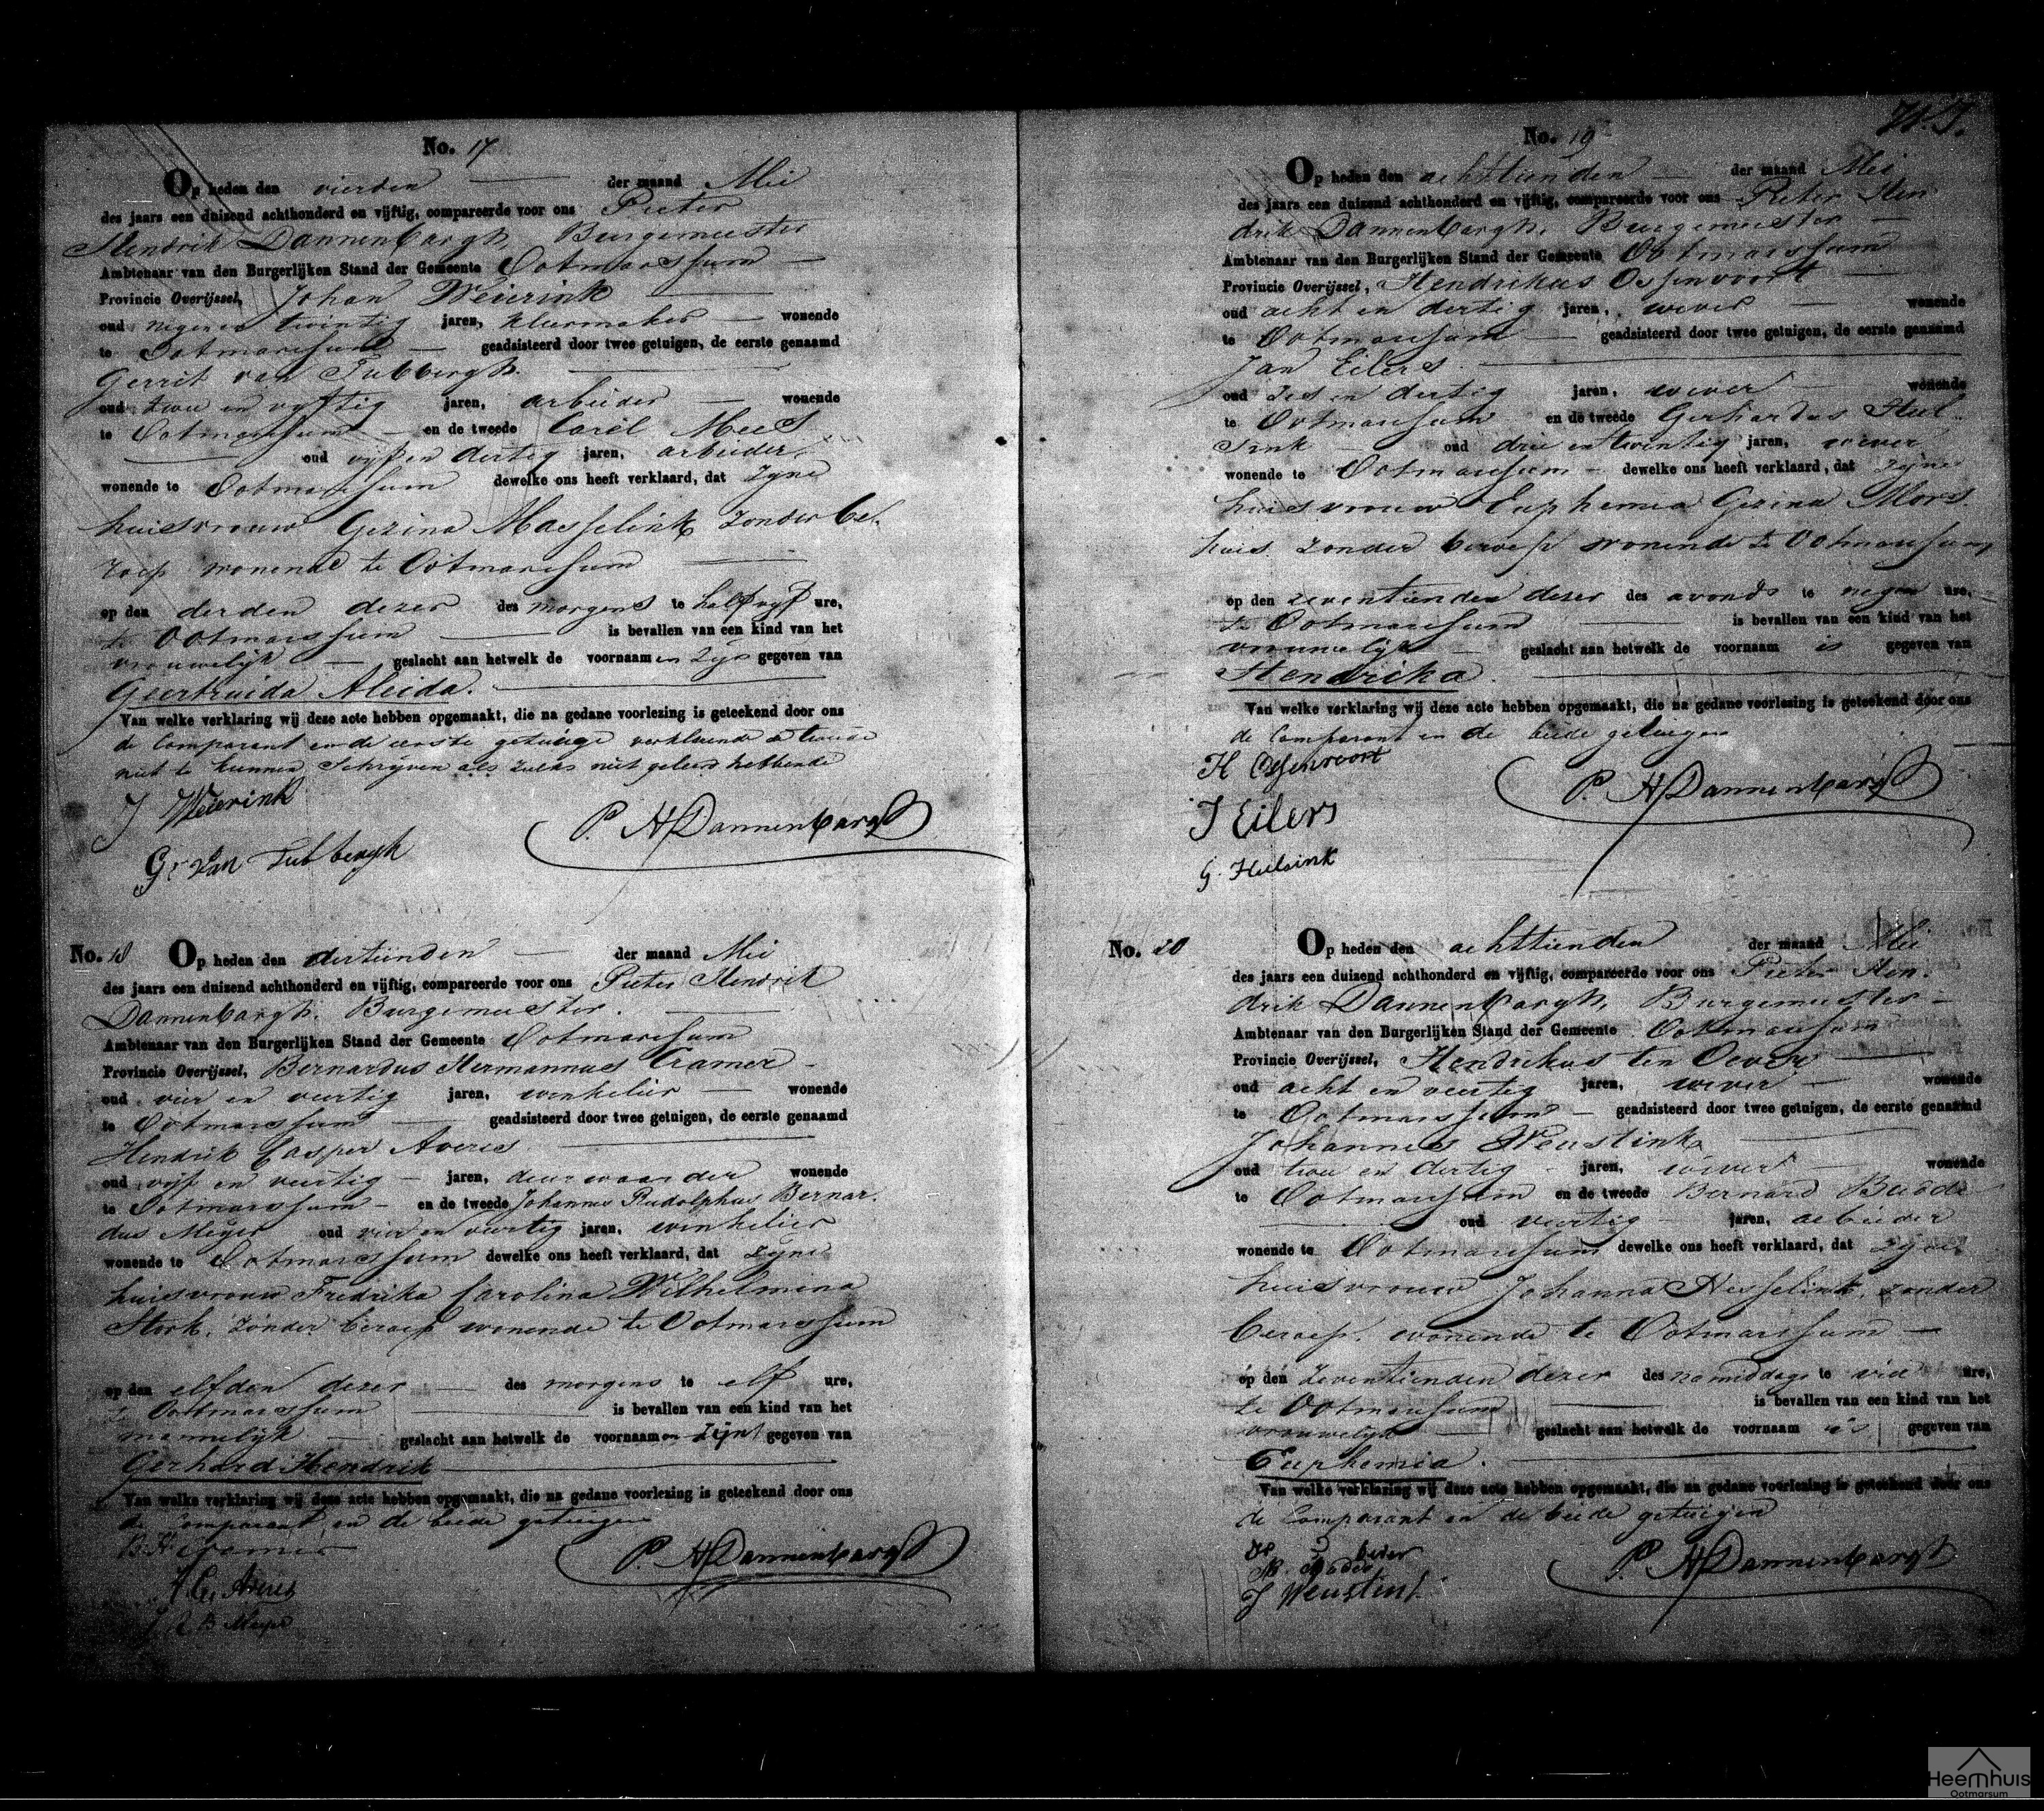 No. 17
Op heden den vierden der maand Mei
des jaars een duizend achthonderd en vijftig, compareerde voor ons Pieter
Hendrik Dannenbargh, Burgemeester
Ambtenaar van den Burgerlijken Stand der Gemeente Ootmarssum
Provincie Overijssel, Johan Weierink
oud negen en twintig jaren, kleermaker wonende
te Ootmarssum geadsisteerd door twee getuigen, de eerste genaamd
Gerrit van Tubbergh.
oud twee en vyftig jaren, arbeider wonende
te Ootmarssum en de tweede Carel Mees
oud vyf en dertig jaren, arbeider,
wonende te Ootmarssum dewelke ons heeft verklaard, dat zyne
huisvrouw Gezina Masselink zonder be-
roep wonende te Ootmarssum
op den derden dezer des morgens te half vyf ure,
te Ootmarssum is bevallen van een kind van het
vrouwelijk geslacht aan hetwelk de voornaamen zyn gegeven van
Geertruida Aleida.
Van welke verklaring wij deze acte hebben opgemaakt, die na gedane voorlezing is geteekend door ons
de Comparant en de eerste getuige verklarende de tweede
niet te kunnen schryven als zulks niet geleerd hebbende
J Weierink
P. H Dannenbargh
Gr van Tubbergh
No. 18 Op heden den dertienden der maand Mei
des jaars een duizend achthonderd en vijftig, compareerde voor ons Pieter Hendrik
Dannenbargh. Burgemeester.
Ambtenaar van den Burgerlijken Stand der Gemeente Ootmarssum
Provincie Overijssel, Bernardus Hermannus Cramer
oud vier en veertig jaren, winkelier wonende
te Ootmarssum geadsisteerd door twee getuigen, de eerste genaamd
Hendrik Casper Averes
oud vyf en veertig jaren, deurwaarder wonende
te Ootmarssum en de tweede Johannes Rudolphus Bernar-
dus Meyer oud vier en veertig jaren, winkelier
wonende te Ootmarssum dewelke ons heeft verklaard, dat zyne
huisvrouw Fredrika Carolina Wilhelmena
Stork, zonder beroep wonende te Ootmarssum
op den elfden dezer des morgens te elf ure,
te Ootmarssum is bevallen van een kind van het
mannelijk geslacht aan hetwelk de voornaamen zijn gegeven van
Gerhard Hendrik
Van welke verklaring wij deze acte hebben opgemaakt, die na gedane voorlezing is geteekend door ons
de Comparant en de beide getuigen
B.H. Cramer
P. H Dannenbargh
H C. Averes
J R B Meyer
No. 19
Op heden den achttienden der maand Mei
des jaars een duizend achthonderd en vijftig, compareerde voor ons Pieter Hen-
drik Dannenbargh, Burgemeester
Ambtenaar van den Burgerlijken Stand der Gemeente Ootmarssum
Provincie Overijssel, Hendrikus Ossenvoort
oud acht en dertig jaren, wever wonende
te Ootmarssum geadsisteerd door twee getuigen, de eerste genaamd
Jan Eilers
oud zes en dertig jaren, wever wonende
te Ootmarssum en de tweede Gerhardus Hul-
sink oud drie en twintig jaren, wever
wonende te Ootmarssum dewelke ons heeft verklaard, dat zyne
huisvrouw Euphemia Gezina Mors-
huis zonder beroep wonende te Ootmarssum
op den zeventienden dezer des avonds te negen ure,
te Ootmarssum is bevallen van een kind van het
vrouwelijk geslacht aan hetwelk de voornaam is gegeven van
Hendrika.
Van welke verklaring wij deze acte hebben opgemaakt, die na gedane voorlezing is geteekend door ons
de Comparant en de beide getuigen
H Ossenvoort
P. H Dannenbargh
J Eilers
G. Hulsink
No. 20 Op heden den achttienden der maand Mei
des jaars een duizend achthonderd en vijftig, compareerde voor ons Pieter Hen-
drik Dannenbargh, Burgemeester
Ambtenaar van den Burgerlijken Stand der Gemeente Ootmarssum
Provincie Overijssel, Hendrikus ten Oever
oud acht en veertig jaren, wever wonende
te Ootmarssum geadsisteerd door twee getuigen, de eerste genaamd
Johannes Weustink
oud twee en dertig jaren, wever wonende
te Ootmarssum en de tweede Bernard Budde
oud veertig jaren, arbeider
wonende te Ootmarssum dewelke ons heeft verklaard, dat zyne
huisvrouw Johanna Hesselink, zonder
beroep, wonende te Ootmarssum
op den zeventienden dezer des namiddags te vier ure,
te Ootmarssum is bevallen van een kind van het
vrouwelijk geslacht aan hetwelk de voornaam is gegeven van
Euphemia.
Van welke verklaring wij deze acte hebben opgemaakt, die na gedane voorlezing is geteekend door ons
de Comparant en de beide getuigen
P. H Dannenbargh
J Weustink
Heemhuis
Ootmarsum